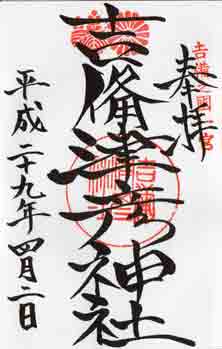 奉拝
吉備之國一宮
吉備津彦神社
平成二十九年四月二日